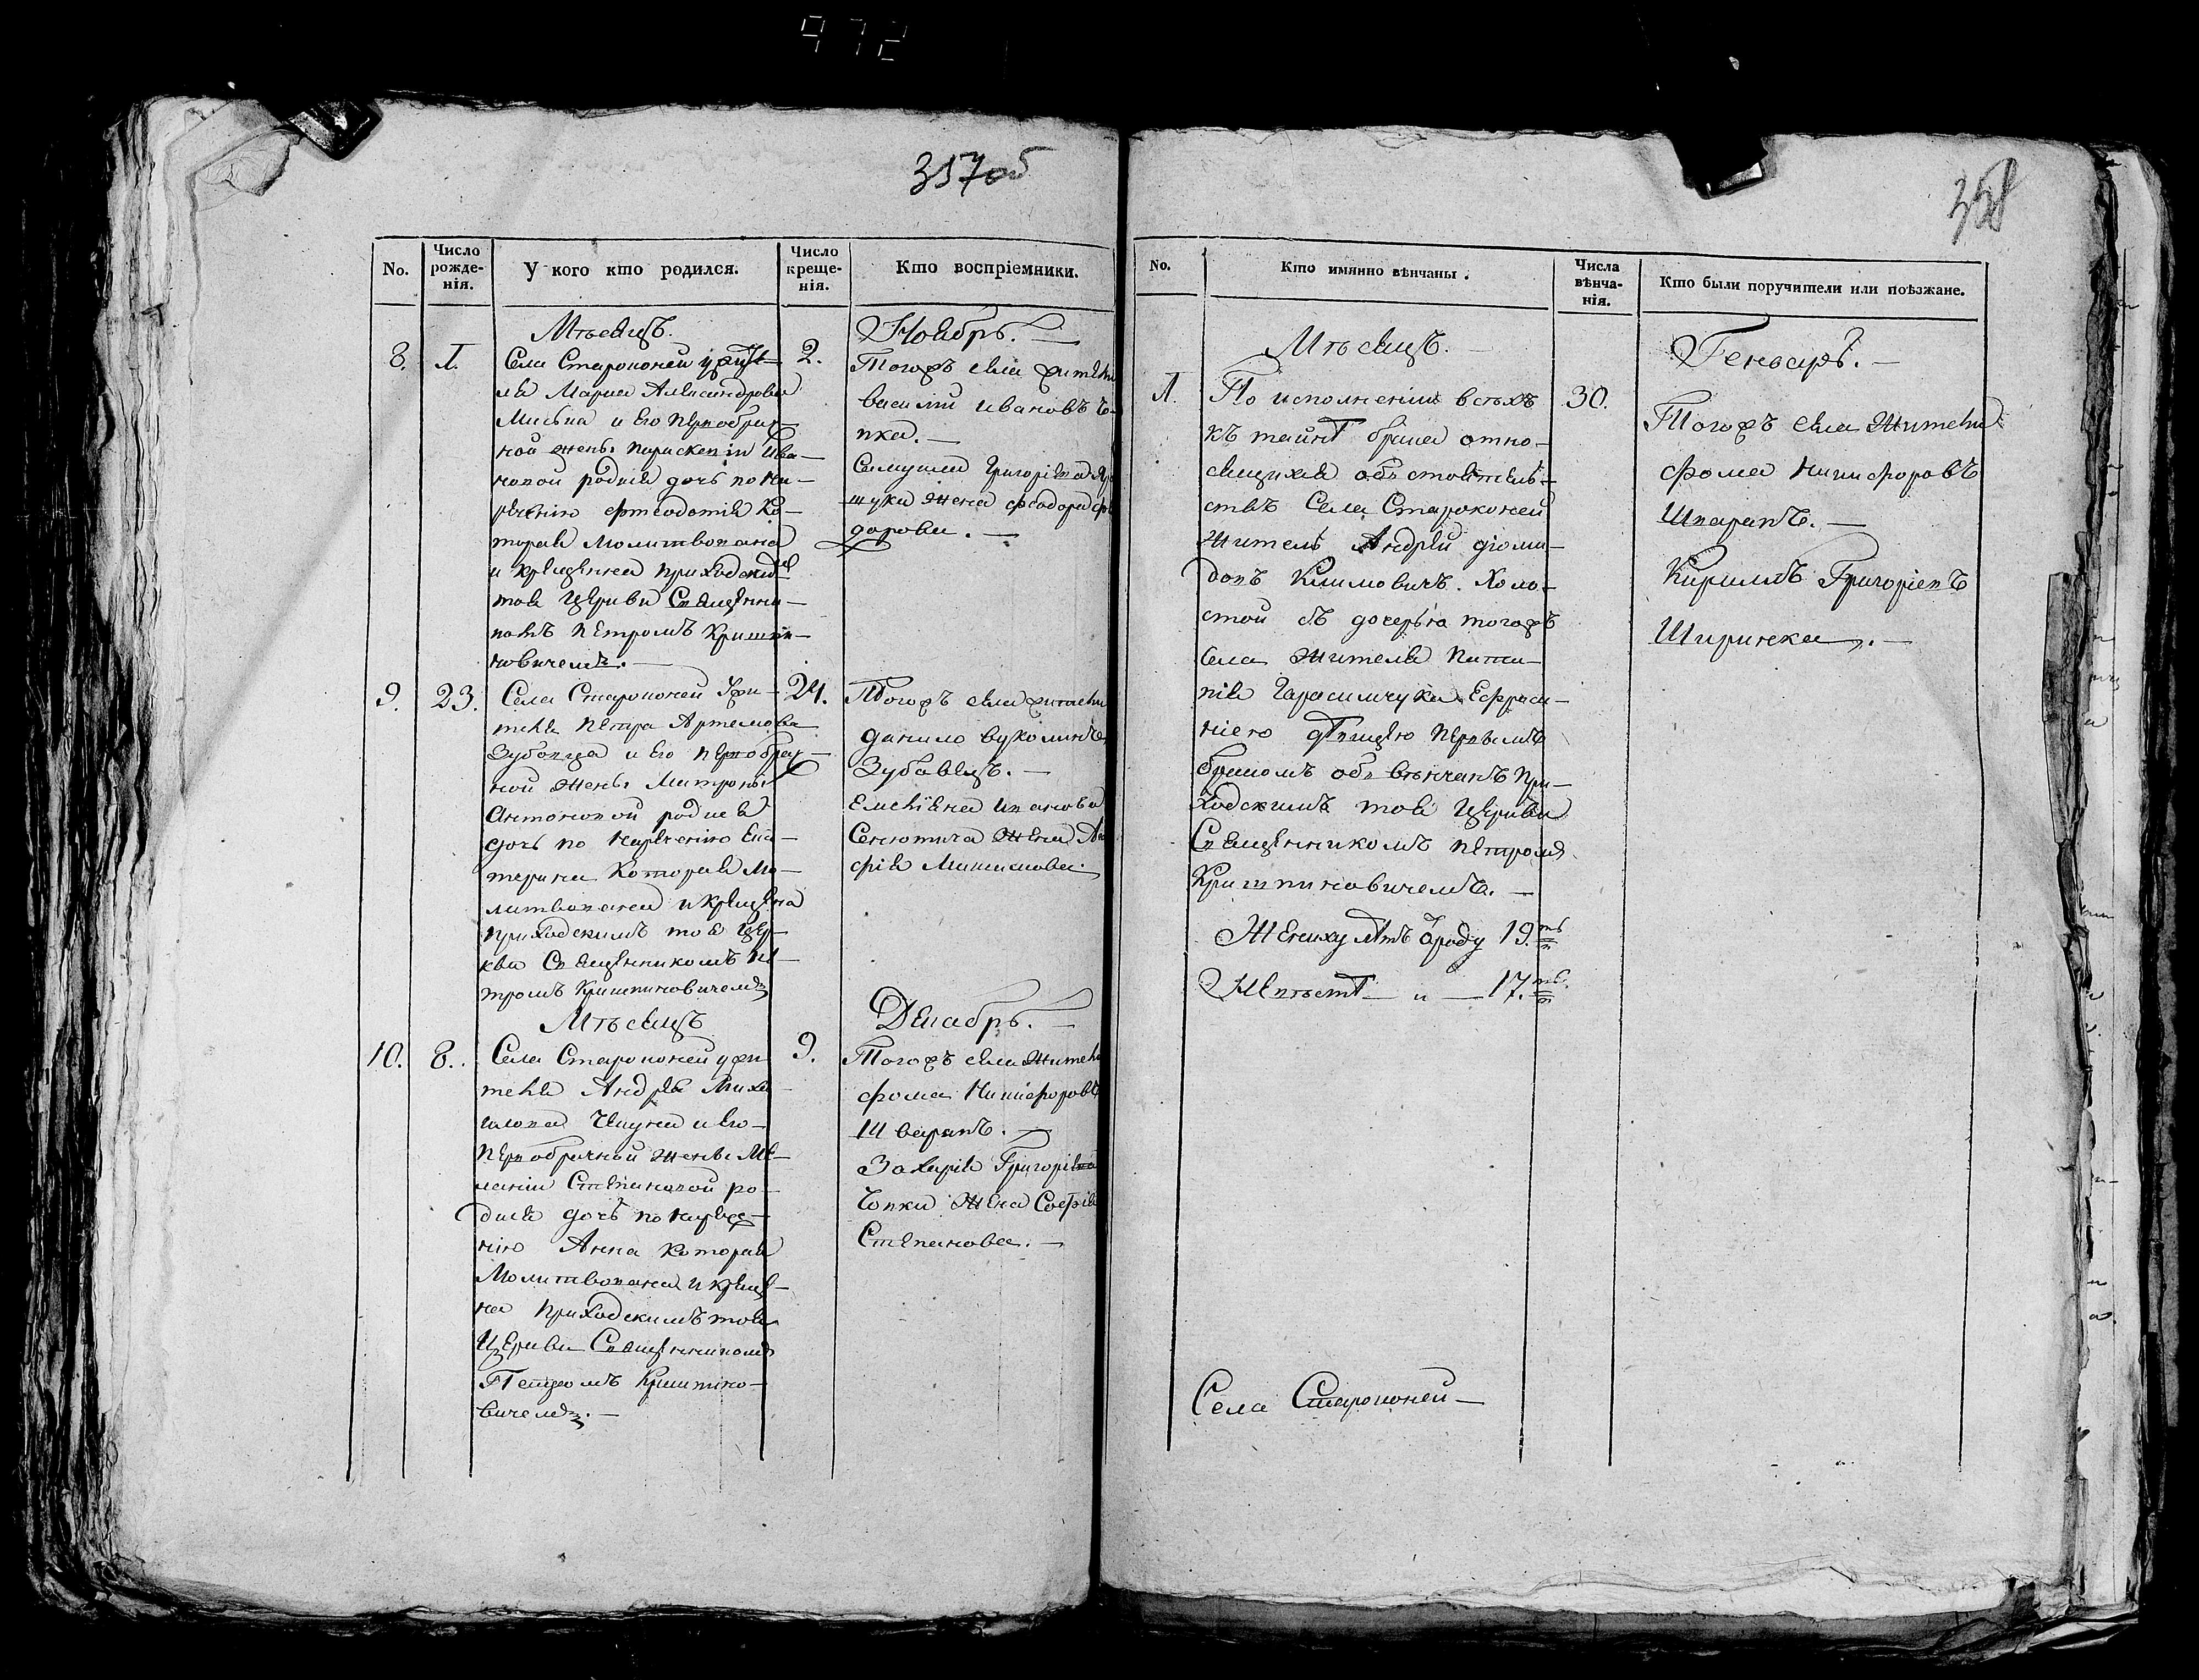 972
357об
No.
Число рожде- нія.
У кого кто родился.
Число креще- нія.
Кто воспріемники.
Мѣсяцъ.
Ноябрь.
8. 1.
Села Староконей у жите-
ля Марка Александрова
и Его первобрач-
ной жены Параскевіи Ива-
новой родися дочь по На-
речению Ѳтеодотія Ко-
торая Молитвована
и крещенна приходским
тоя Церкви Священни-
комъ Петромъ Кришти-
новичемъ.
2.
Тогожъ села жители
василій ивановъ Чо-
пка.
Самуила Григоріева
жена Ѳеодора Ѳе
дорова.
9. 23.
Села Староконей Жи-
теля Петра Артемова
Зубовца и Его первобрач-
ной жены Матроны
Антоновой родися
дочь по наречению Ека-
терина Которая Мо-
литвована и крещена
приходскимъ тоя Цер-
кви Священникомъ Пе-
тромъ Криштиновичемъ
24.
Тогожъ села жители
данило вуколинъ
Зубавецъ.
Емеліяна Иванова
Сенютича Жена
фія Микитова.
Мѣсяцъ
Декабрь.
10. 8.
Села Староконей у жи-
теля Андрея Миха-
илова Чикуна и Его
Первобрачной жены Ме-
ланіи Степановой ро-
дися дочь по нарече-
нію Анна Которая
Молитвована и креще-
на приходскимъ тоя
Церкви Священникомъ
Петромъ Криштино-
вичемъ.
9.
Тогожъ села Жители
фома Никифоровъ
Шваранъ.
Захарія Григоріева
Чопки Жена Софія
Степанова.
358
No.
Кто имянно вѣнчаны.
Числа вѣнча- нія.
Кто были поручители или поѣзжане.
Мѣсяцъ.
Генваръ.
1.
По исполненіи всѣхъ
къ тайнѣ брака отно-
сящихся обстоятель-
ствъ Села Староконей
Житель Андрей дioми-
довъ Климовичъ Холо-
стой съ дочерью тогожъ
села жителя
Гарасимчука Ефраси-
ніею дѣвицею первымъ
бракомъ обвѣнчанъ при-
ходскимъ тоя Церкви
Священникомъ петромъ
Криштиновичемъ.
Жениху лѣтъ ѿроду 19.ть
Невѣстѣ — „ — 17.ть
30.
Тогожъ села Жители
фома Никифоровъ
Шваранъ.
Кирилъ Григоріевъ
Ширинка.
Села Староконей